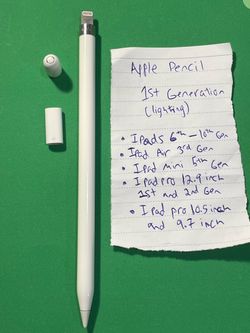 Apple Pencil
1st Generation
(lighting)
• IPads 6th - 10th Gen
• IPad Air 3rd Gen
• IPad mini 5th Gen
• IPad pro 12.9 inch
1st and 2nd Gen
• IPad pro 10.5 inch
and 9.7 inch